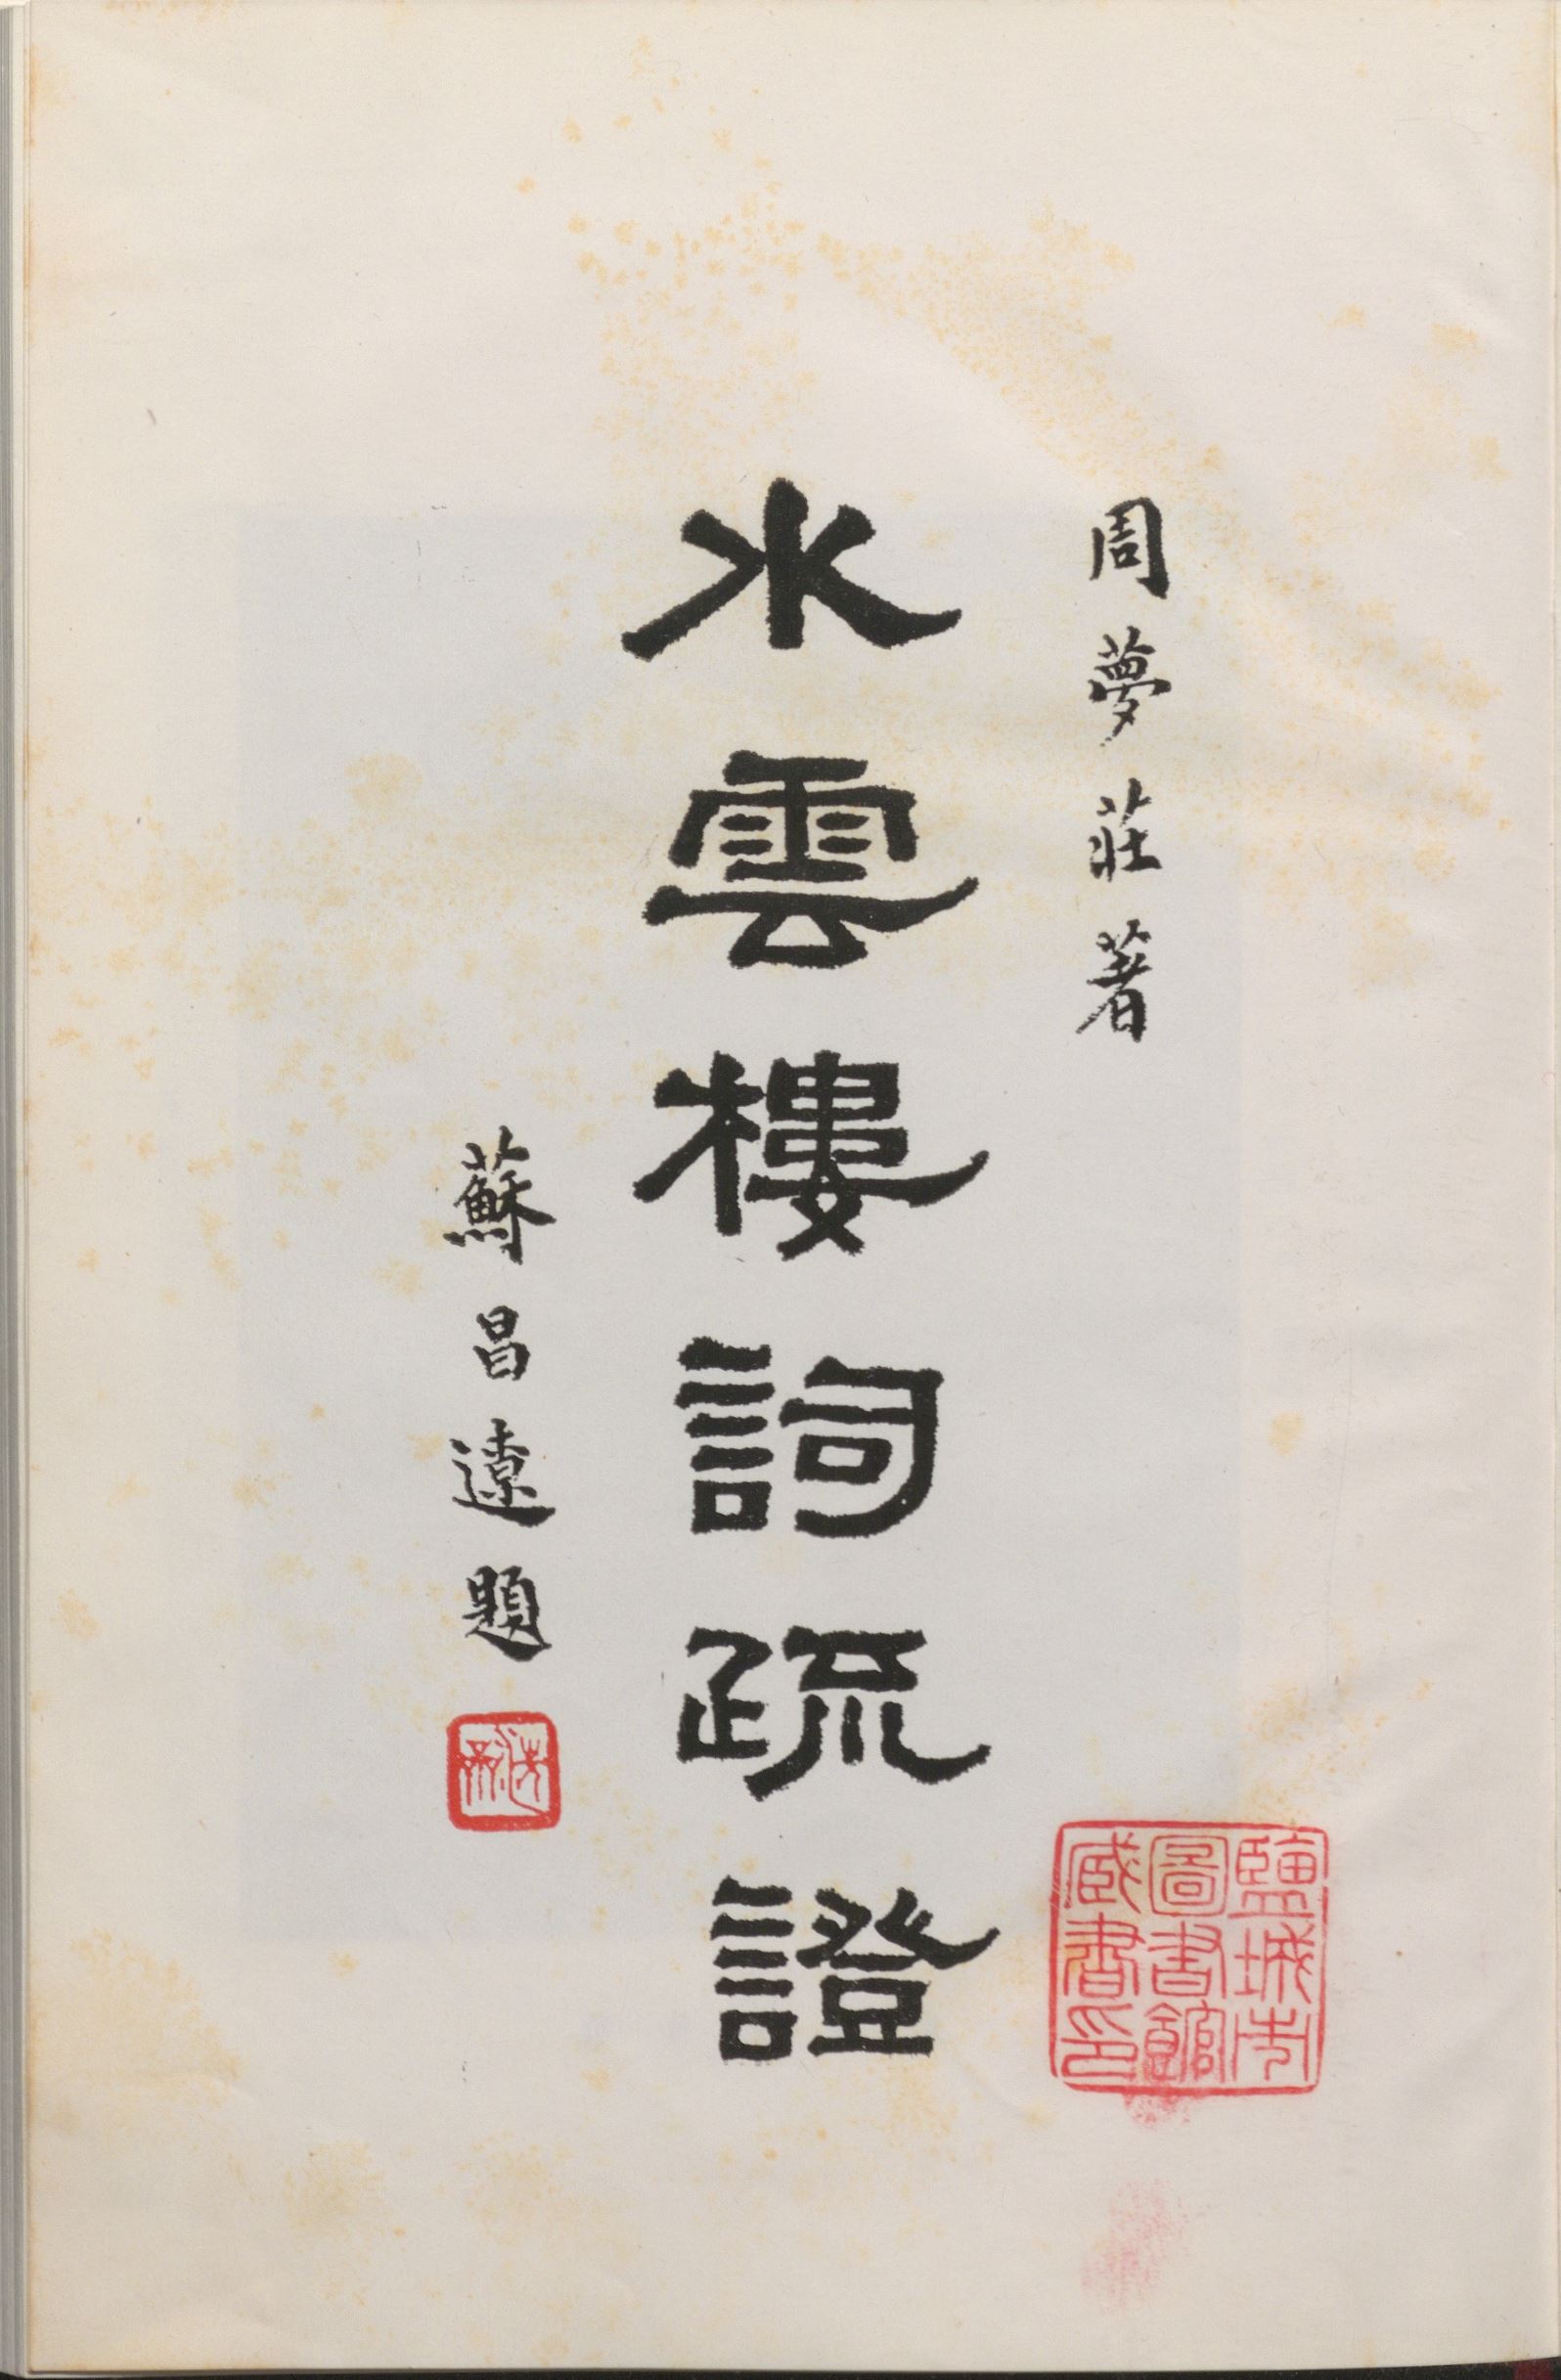 周夢莊著
水雲樓詞疏證
蘇昌遠題
鹽城市
圖書館
藏書印